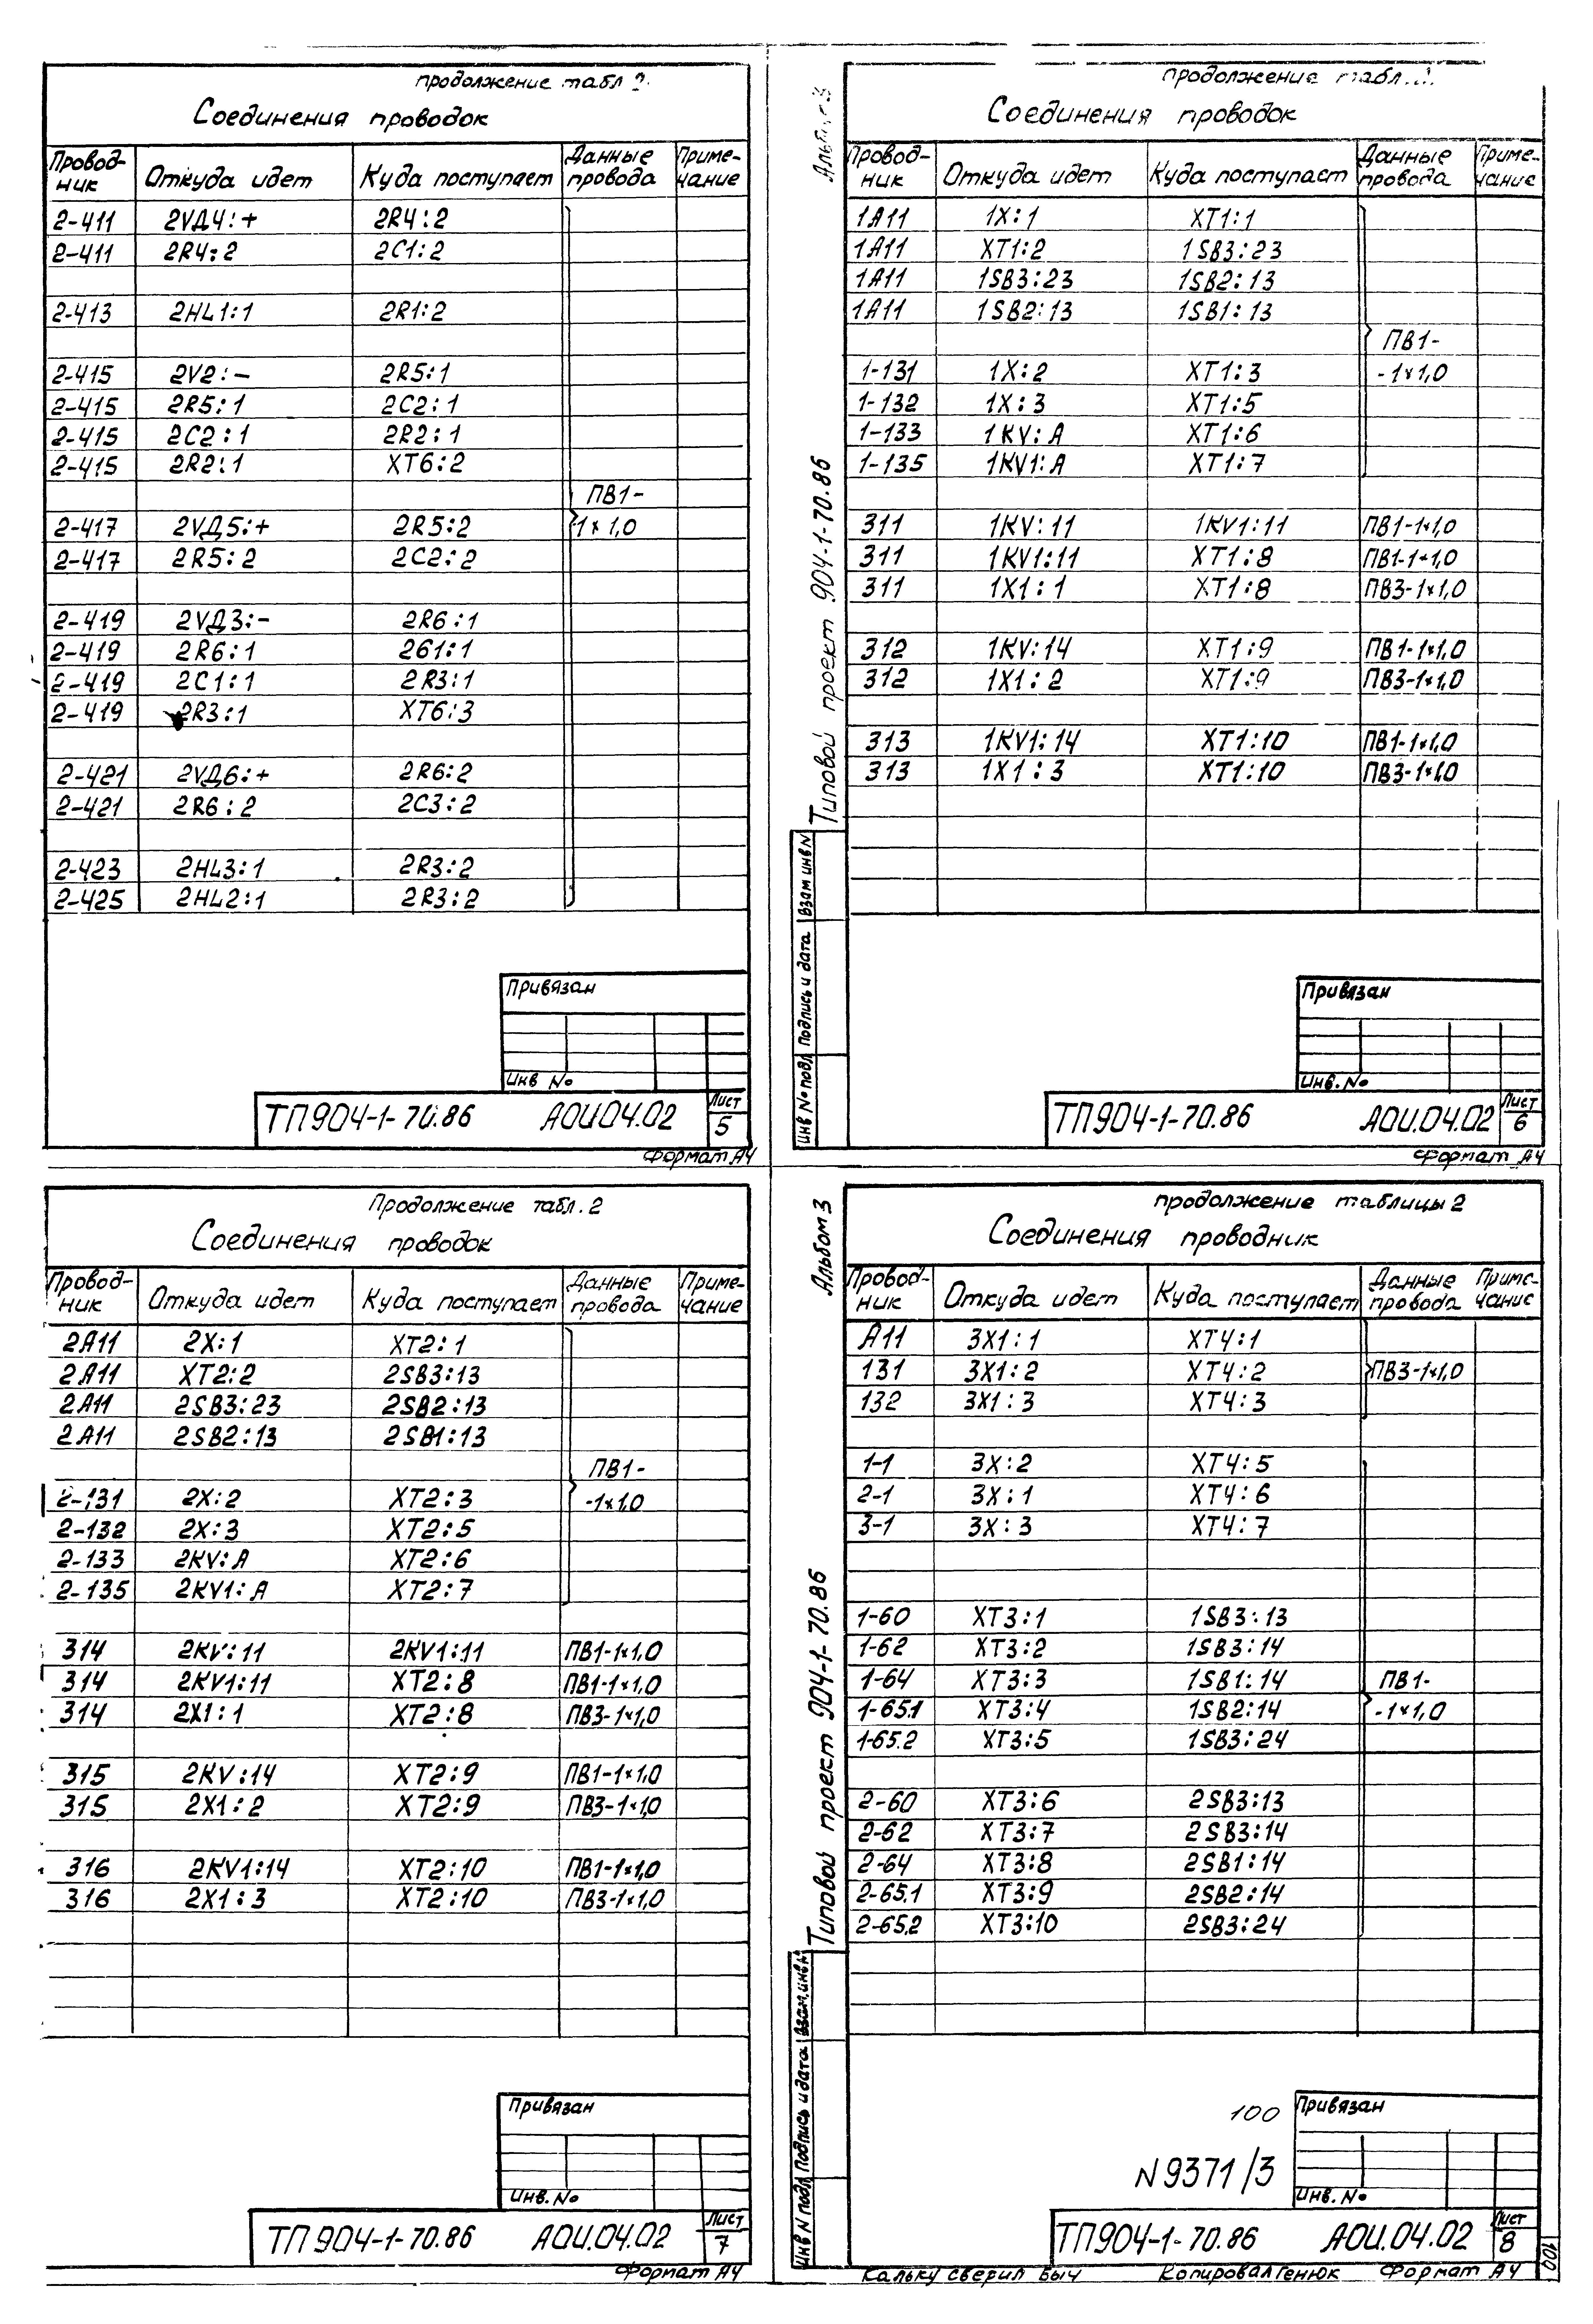 продолжение табл 2.
Соединения проводок
Провод-ник Откуда идет Куда поступает Данные провода Приме-чание
2-411 2VД4:+ 2R4:2
2-411 2R4:2 2C1:2
2-413 2HL1:1 2R1:2
2-415 2V2:- 2R5:1
2-415 2R5:1 2C2:1
2-415 2C2:1 2R2:1
2-415 2R2:1 XT6:2
ПВ1-
2-417 2VД5:+ 2R5:2 1×1,0
2-417 2R5:2 2C2:2
2-419 2VД3:- 2R6:1
2-419 2R6:1 261:1
2-419 2C1:1 2R3:1
2-419 2R3:1 XT6:3
2-421 2VД6:+ 2R6:2
2-421 2R6:2 2C3:2
2-423 2HL3:1 2R3:2
2-425 2HL2:1 2R3:2
Привязан
Инв No
ТП904-1-70.86 АОИ.04.02 Лист 5
Формат А4
продолжение табл.
Соединения проводок
Провод-ник Откуда идет Куда поступает Данные провода Приме-чание
1A11 1X:1 XT1:1
1A11 XT1:2 1SB3:23
1A11 1SB3:23 1SB2:13
1A11 1SB2:13 1SB1:13
ПВ1-
1-131 1X:2 XT1:3 -1×1,0
1-132 1X:3 XT1:5
1-133 1KV:A XT1:6
1-135 1KV1:A XT1:7
311 1KV:11 1KV1:11 ПВ1-1×1,0
311 1KV1:11 XT1:8 ПВ1-1×1,0
311 1X1:1 XT1:8 ПВ3-1×1,0
312 1KV:14 XT1:9 ПВ1-1×1,0
312 1X1:2 XT1:9 ПВ3-1×1,0
313 1KV1:14 XT1:10 ПВ1-1×1,0
313 1X1:3 XT1:10 ПВ3-1×1,0
Типовой проект 904-1-70.86
Инв № подл Подпись и дата Взам инв N
Привязан
Инв. No
ТП904-1-70.86 АОИ.04.02 Лист 6
Формат А4
Продолжение табл.2
Соединения проводок
Провод-ник Откуда идет Куда поступает Данные провода Приме-чание
2A11 2X:1 XT2:1
2A11 XT2:2 2SB3:13
2A11 2SB3:23 2SB2:13
2A11 2SB2:13 2SB1:13
ПВ1-
2-131 2X:2 XT2:3 -1×1,0
2-132 2X:3 XT2:5
2-133 2KV:A XT2:6
2-135 2KV1:A XT2:7
314 2KV:11 2KV1:11 ПВ1-1×1,0
314 2KV1:11 XT2:8 ПВ1-1×1,0
314 2X1:1 XT2:8 ПВ3-1×1,0
315 2KV:14 XT2:9 ПВ1-1×1,0
315 2X1:2 XT2:9 ПВ3-1×1,0
316 2KV1:14 XT2:10 ПВ1-1×1,0
316 2X1:3 XT2:10 ПВ3-1×1,0
Привязан
Инв. No
ТП904-1-70.86 АОИ.04.02 Лист 7
Формат А4
Альбом 3
продолжение таблицы 2
Соединения проводник
Провод-ник Откуда идет Куда поступает Данные провода Приме-чание
A11 3X1:1 XT4:1
131 3X1:2 XT4:2 ПВ3-1×1,0
132 3X1:3 XT4:3
1-1 3X:2 XT4:5
2-1 3X:1 XT4:6
3-1 3X:3 XT4:7
1-60 XT3:1 1SB3:13
1-62 XT3:2 1SB3:14
1-64 XT3:3 1SB1:14 ПВ1-
1-65.1 XT3:4 1SB2:14 -1×1,0
1-65.2 XT3:5 1SB3:24
2-60 XT3:6 2SB3:13
2-62 XT3:7 2SB3:14
2-64 XT3:8 2SB1:14
2-65.1 XT3:9 2SB2:14
2-65.2 XT3:10 2SB3:24
Типовой проект 904-1-70.86
Инв N подл Подпись и дата Взам.инв.N
100
N9371/3
Привязан
Инв. No
ТП904-1-70.86 АОИ.04.02 Лист 8
Кальку сверил Быч Копировал Генюк Формат А4
100